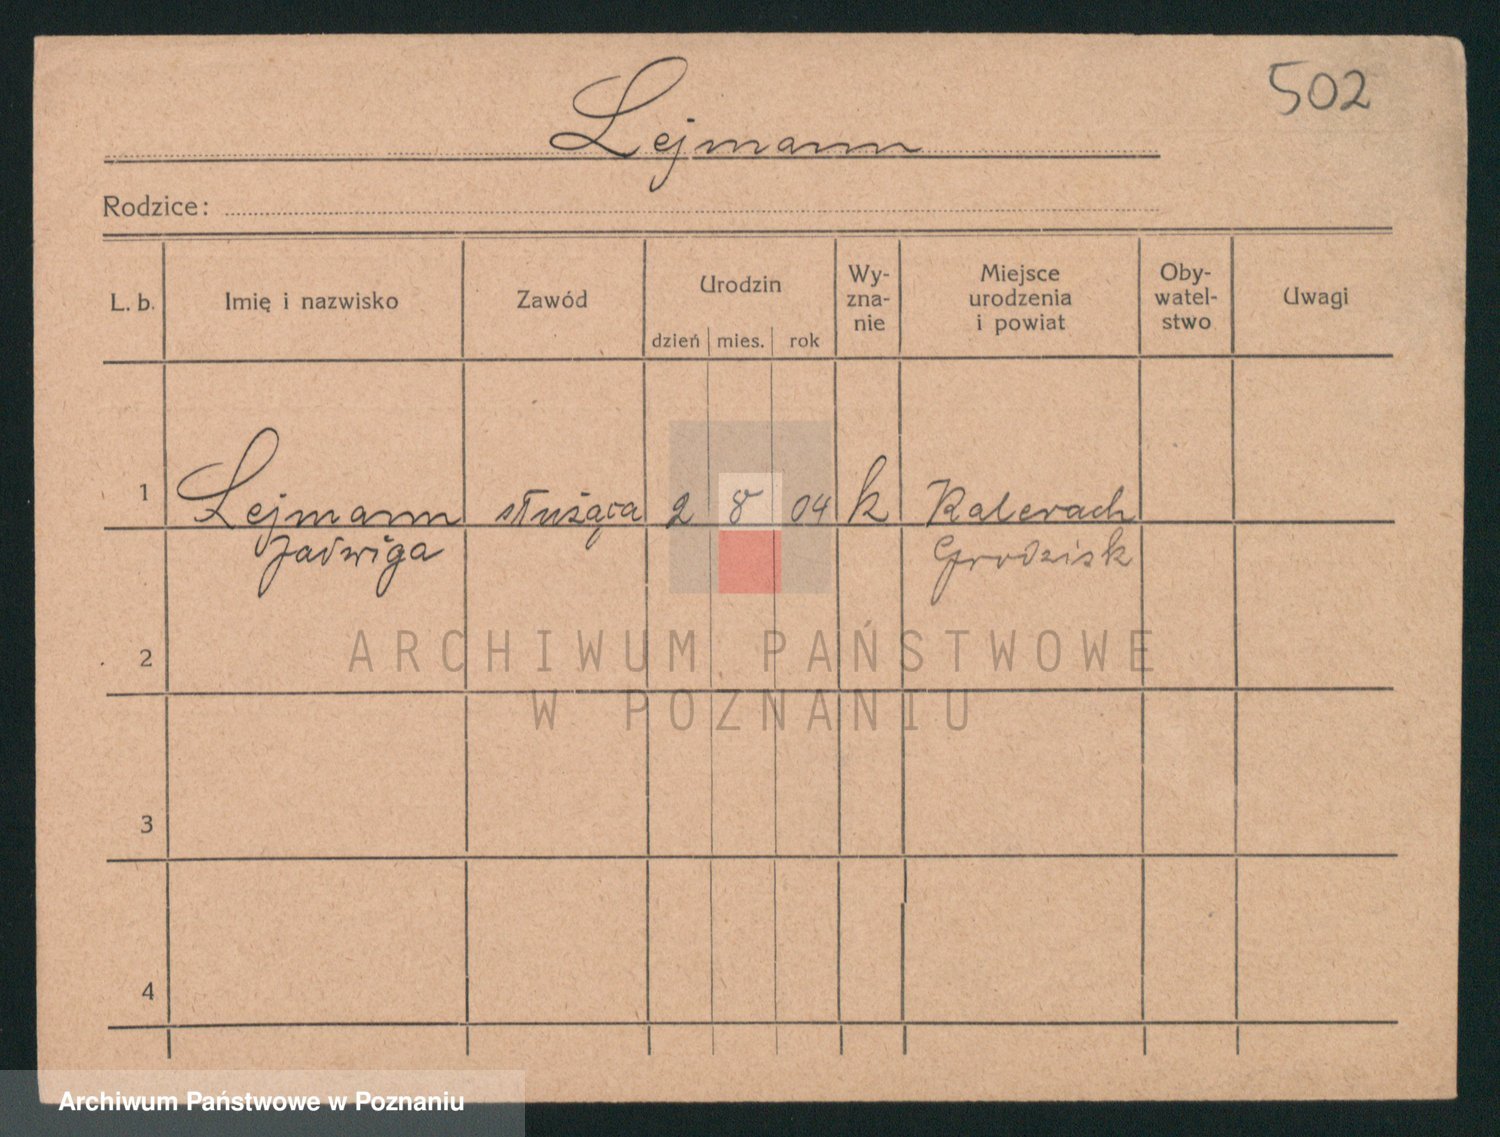 502
Lejmann
Rodzice:
L. b. Imię i nazwisko Zawód Urodzin dzień mies. rok Wy- zna- nie Miejsce urodzenia i powiat Oby- watel- stwo Uwagi
1 Lejmann służąca 2 8 04 k Ralerach
Jadwiga Grodzisk
2
3
4
ARCHIWUM PAŃSTWOWE
W POZNANIU
Archiwum Państwowe w Poznaniu